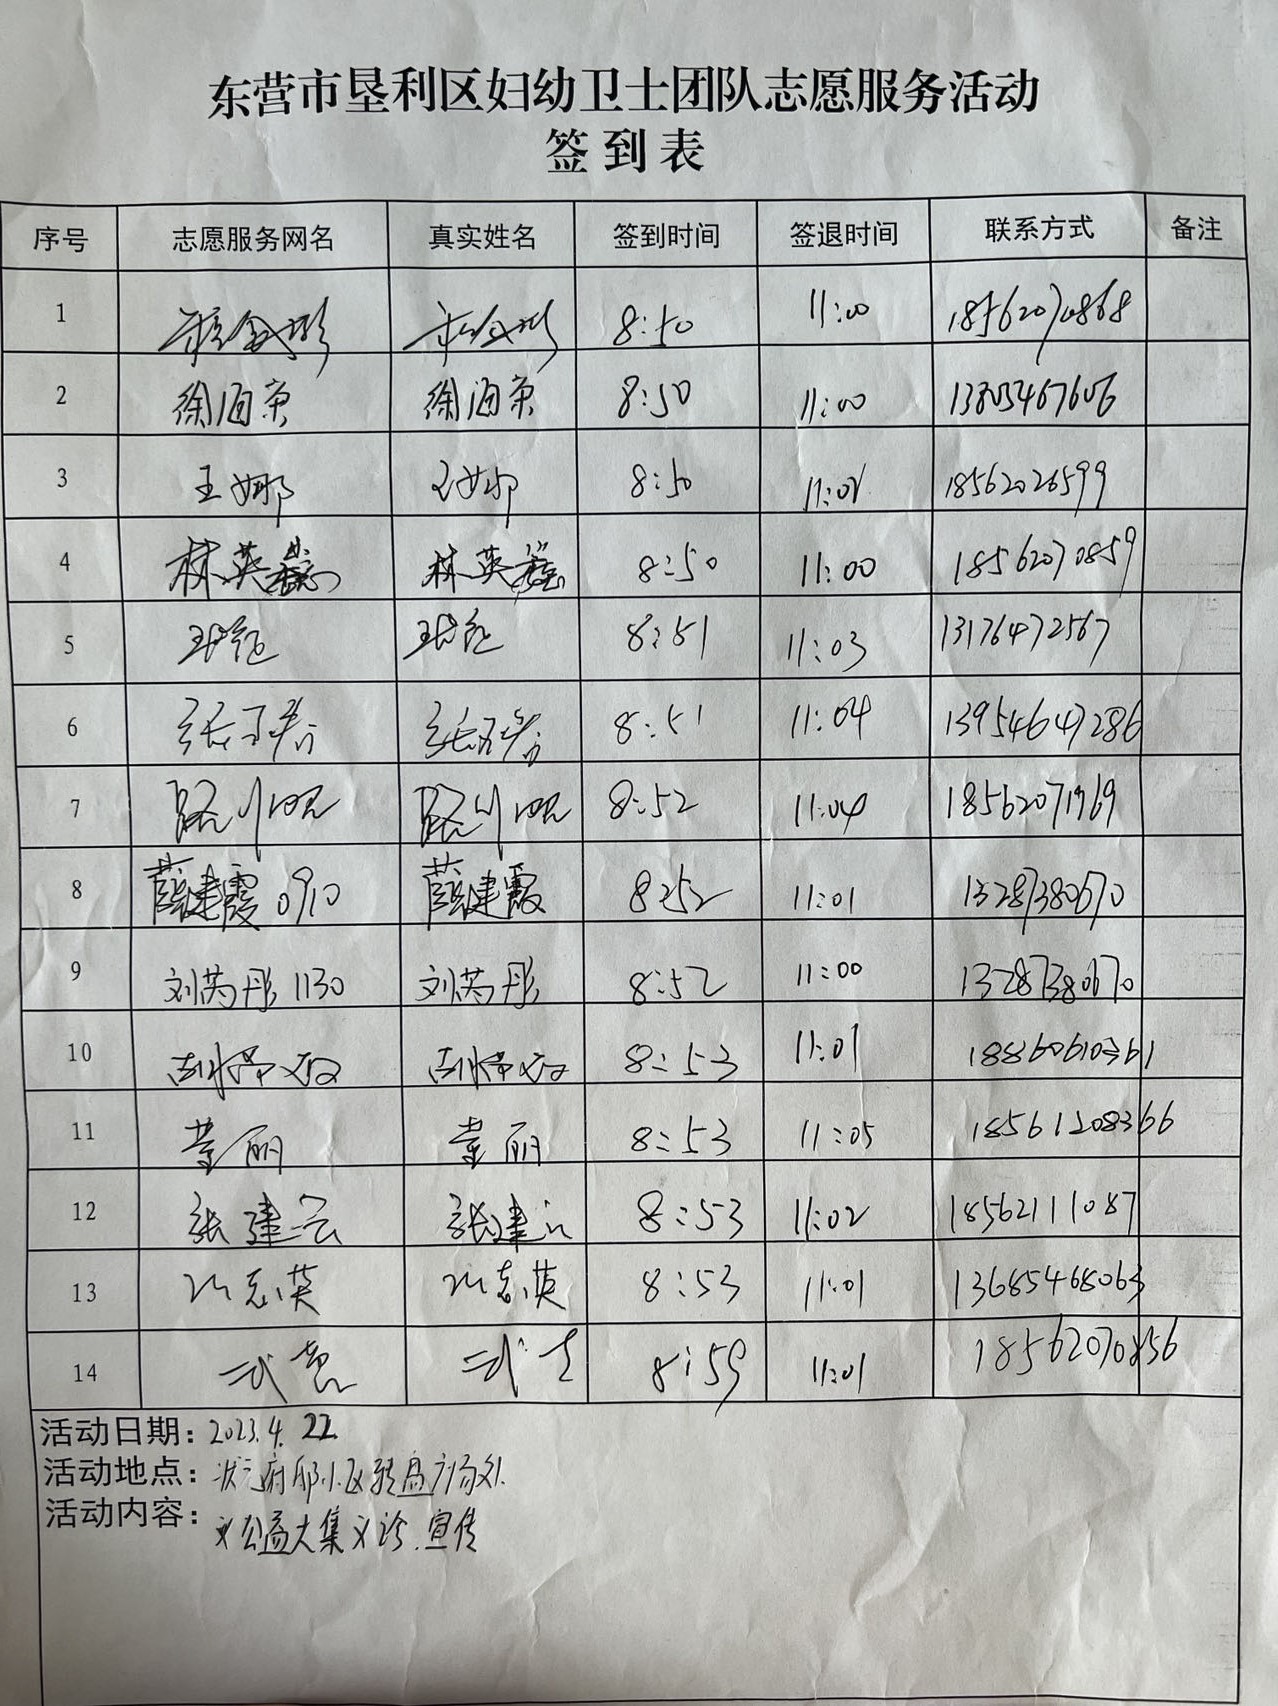 东营市垦利区妇幼卫士团队志愿服务活动
签到表
序号 志愿服务网名 真实姓名 签到时间 签退时间 联系方式 备注
1 8:50 11:00 18562070868
2 徐海英 徐海英 8:50 11:00 13805467606
3 王娜 王娜 8:50 11:02 18562026599
4 林英 林英 8:50 11:00 18562070859
5 8:51 11:03 13176472567
6 8:51 11:04 13954647286
7 8:52 11:04 18562071969
8 薛建霞0910 薛建霞 8:52 11:01 13287380670
9 刘芮彤1130 刘芮彤 8:52 11:00 13287380670
10 8:53 11:01 18860610361
11 董丽 董丽 8:53 11:05 18561208366
12 张建云 张建云 8:53 11:02 18562111087
13 志英 志英 8:53 11:01 13685468063
14 武 武 8:59 11:01 18562070856
活动日期：2023.4.22
活动地点：状元府邸小区转盘广场处
活动内容：公益大集义诊.宣传